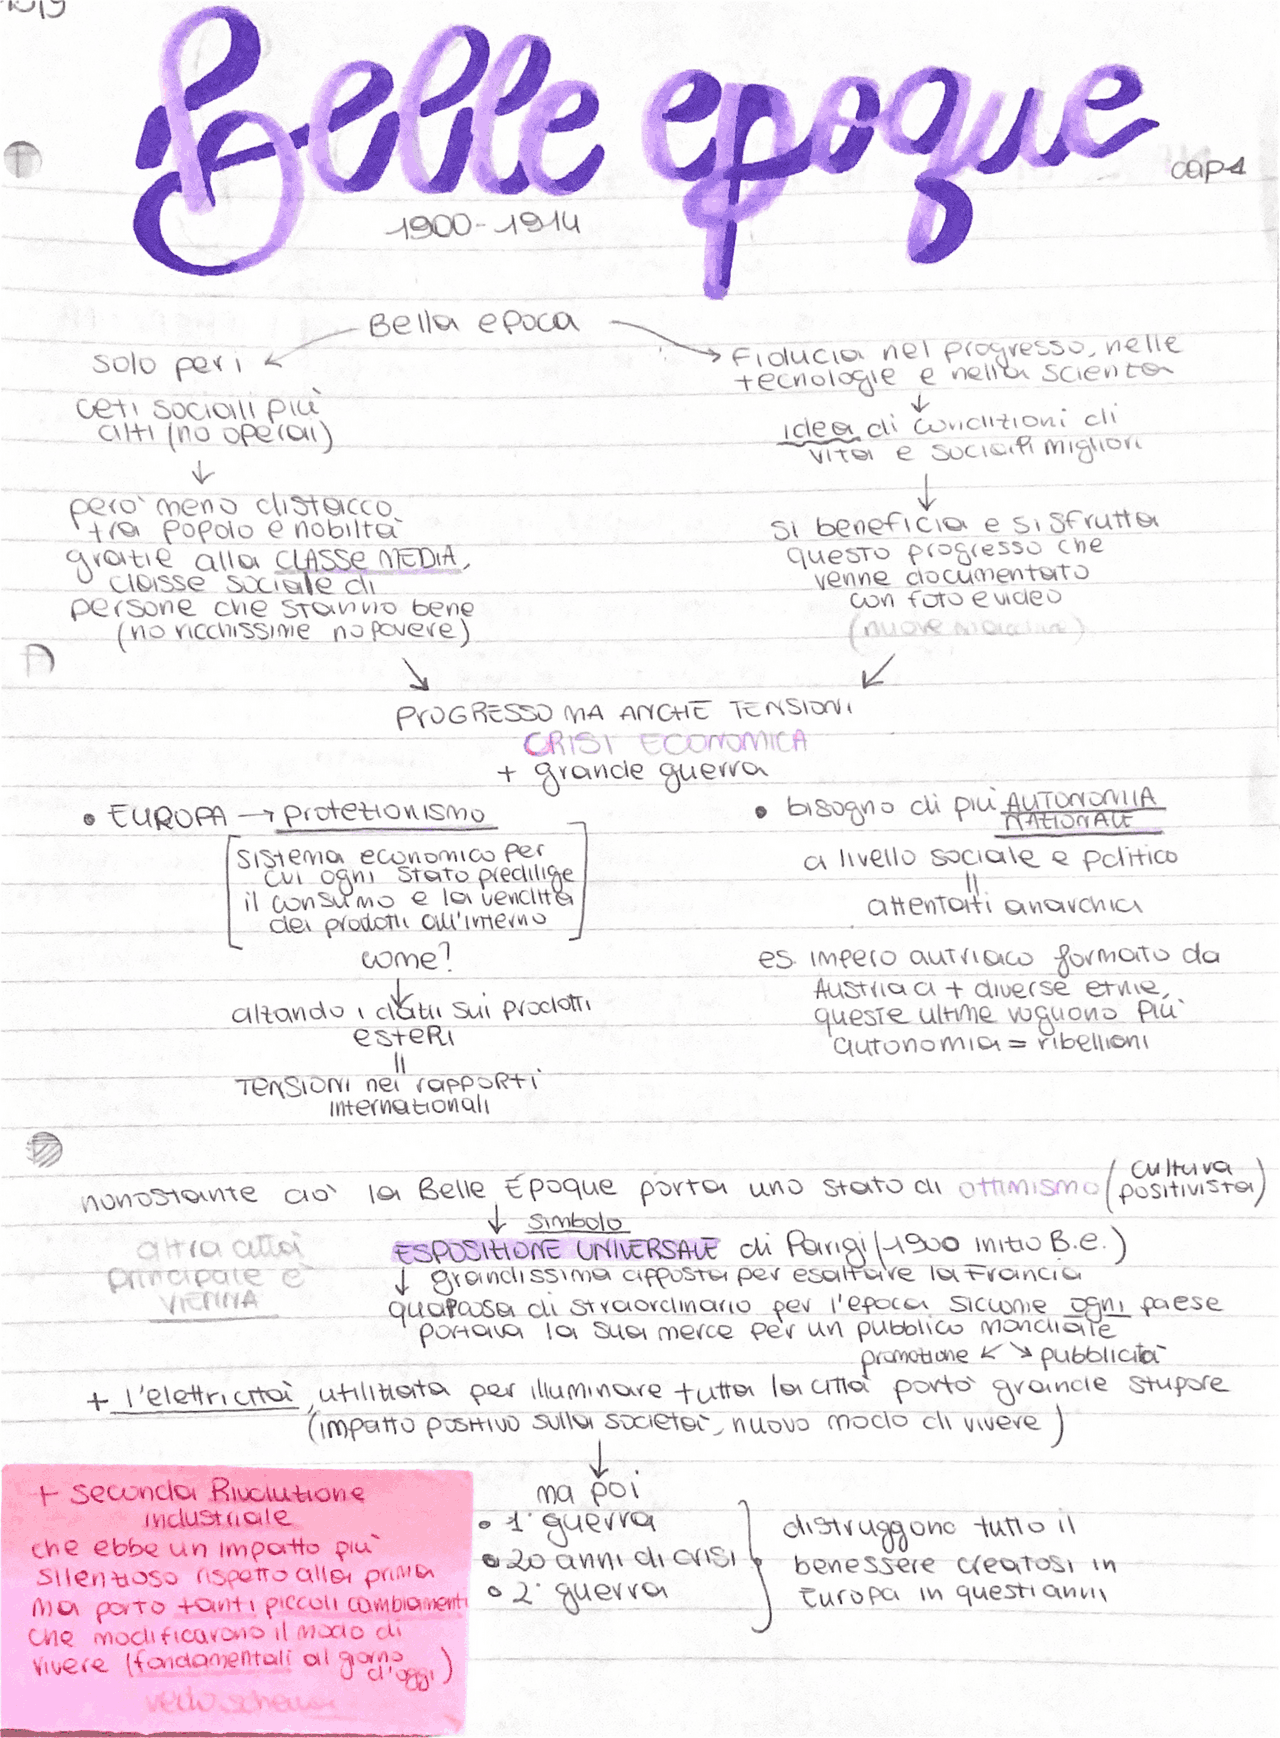 Belle epoque
cap 1
1900-1914
Bella epoca
solo per i
ceti sociali più
alti (no operai)
però meno distacco
tra popolo e nobiltà
grazie alla CLASSE MEDIA,
classe sociale di
persone che stanno bene
(no ricchissime no povere)
Fiducia nel progresso, nelle
tecnologie e nella scienza
idea di condizioni di
vita e sociali migliori
si beneficia e si sfrutta
questo progresso che
venne documentato
con foto e video
(nuove macchine)
PROGRESSO MA ANCHE TENSIONI
CRISI ECONOMICA
+ grande guerra
• EUROPA → protezionismo
[sistema economico per
cui ogni stato predilige
il consumo e la vendita
dei prodotti all'interno]
come?
alzando i dazii sui prodotti
esteri
||
TENSIONI nei rapporti
internazionali
• bisogno di più AUTONOMIA
NAZIONALE
a livello sociale e politico
||
attentati anarchici
es. impero autriaco formato da
Austriaci + diverse etnie,
queste ultime vogliono più
autonomia = ribellioni
nonostante ciò la Belle Époque porta uno stato di ottimismo (cultura
positivista)
↓ simbolo
altra città
principale è
VIENNA
ESPOSIZIONE UNIVERSALE di Parigi (1900 inizio B.e.)
↓ grandissima apposta per esaltare la Francia
qualcosa di straordinario per l'epoca siccome ogni paese
portava la sua merce per un pubblico mondiale
promozione ↙ ↘ pubblicità
+ l'elettricità, utilizzata per illuminare tutta la città portò grande stupore
(impatto positivo sulla società, nuovo modo di vivere)
ma poi
• 1° guerra
• 20 anni di crisi
• 2° guerra
distruggono tutto il
benessere creatosi in
Europa in questi anni
+ seconda Rivoluzione
industriale
che ebbe un impatto più
silenzioso rispetto alla prima
ma portò tanti piccoli cambiamenti
che modificarono il modo di
vivere (fondamentali al giorno
d'oggi)
vedi schema